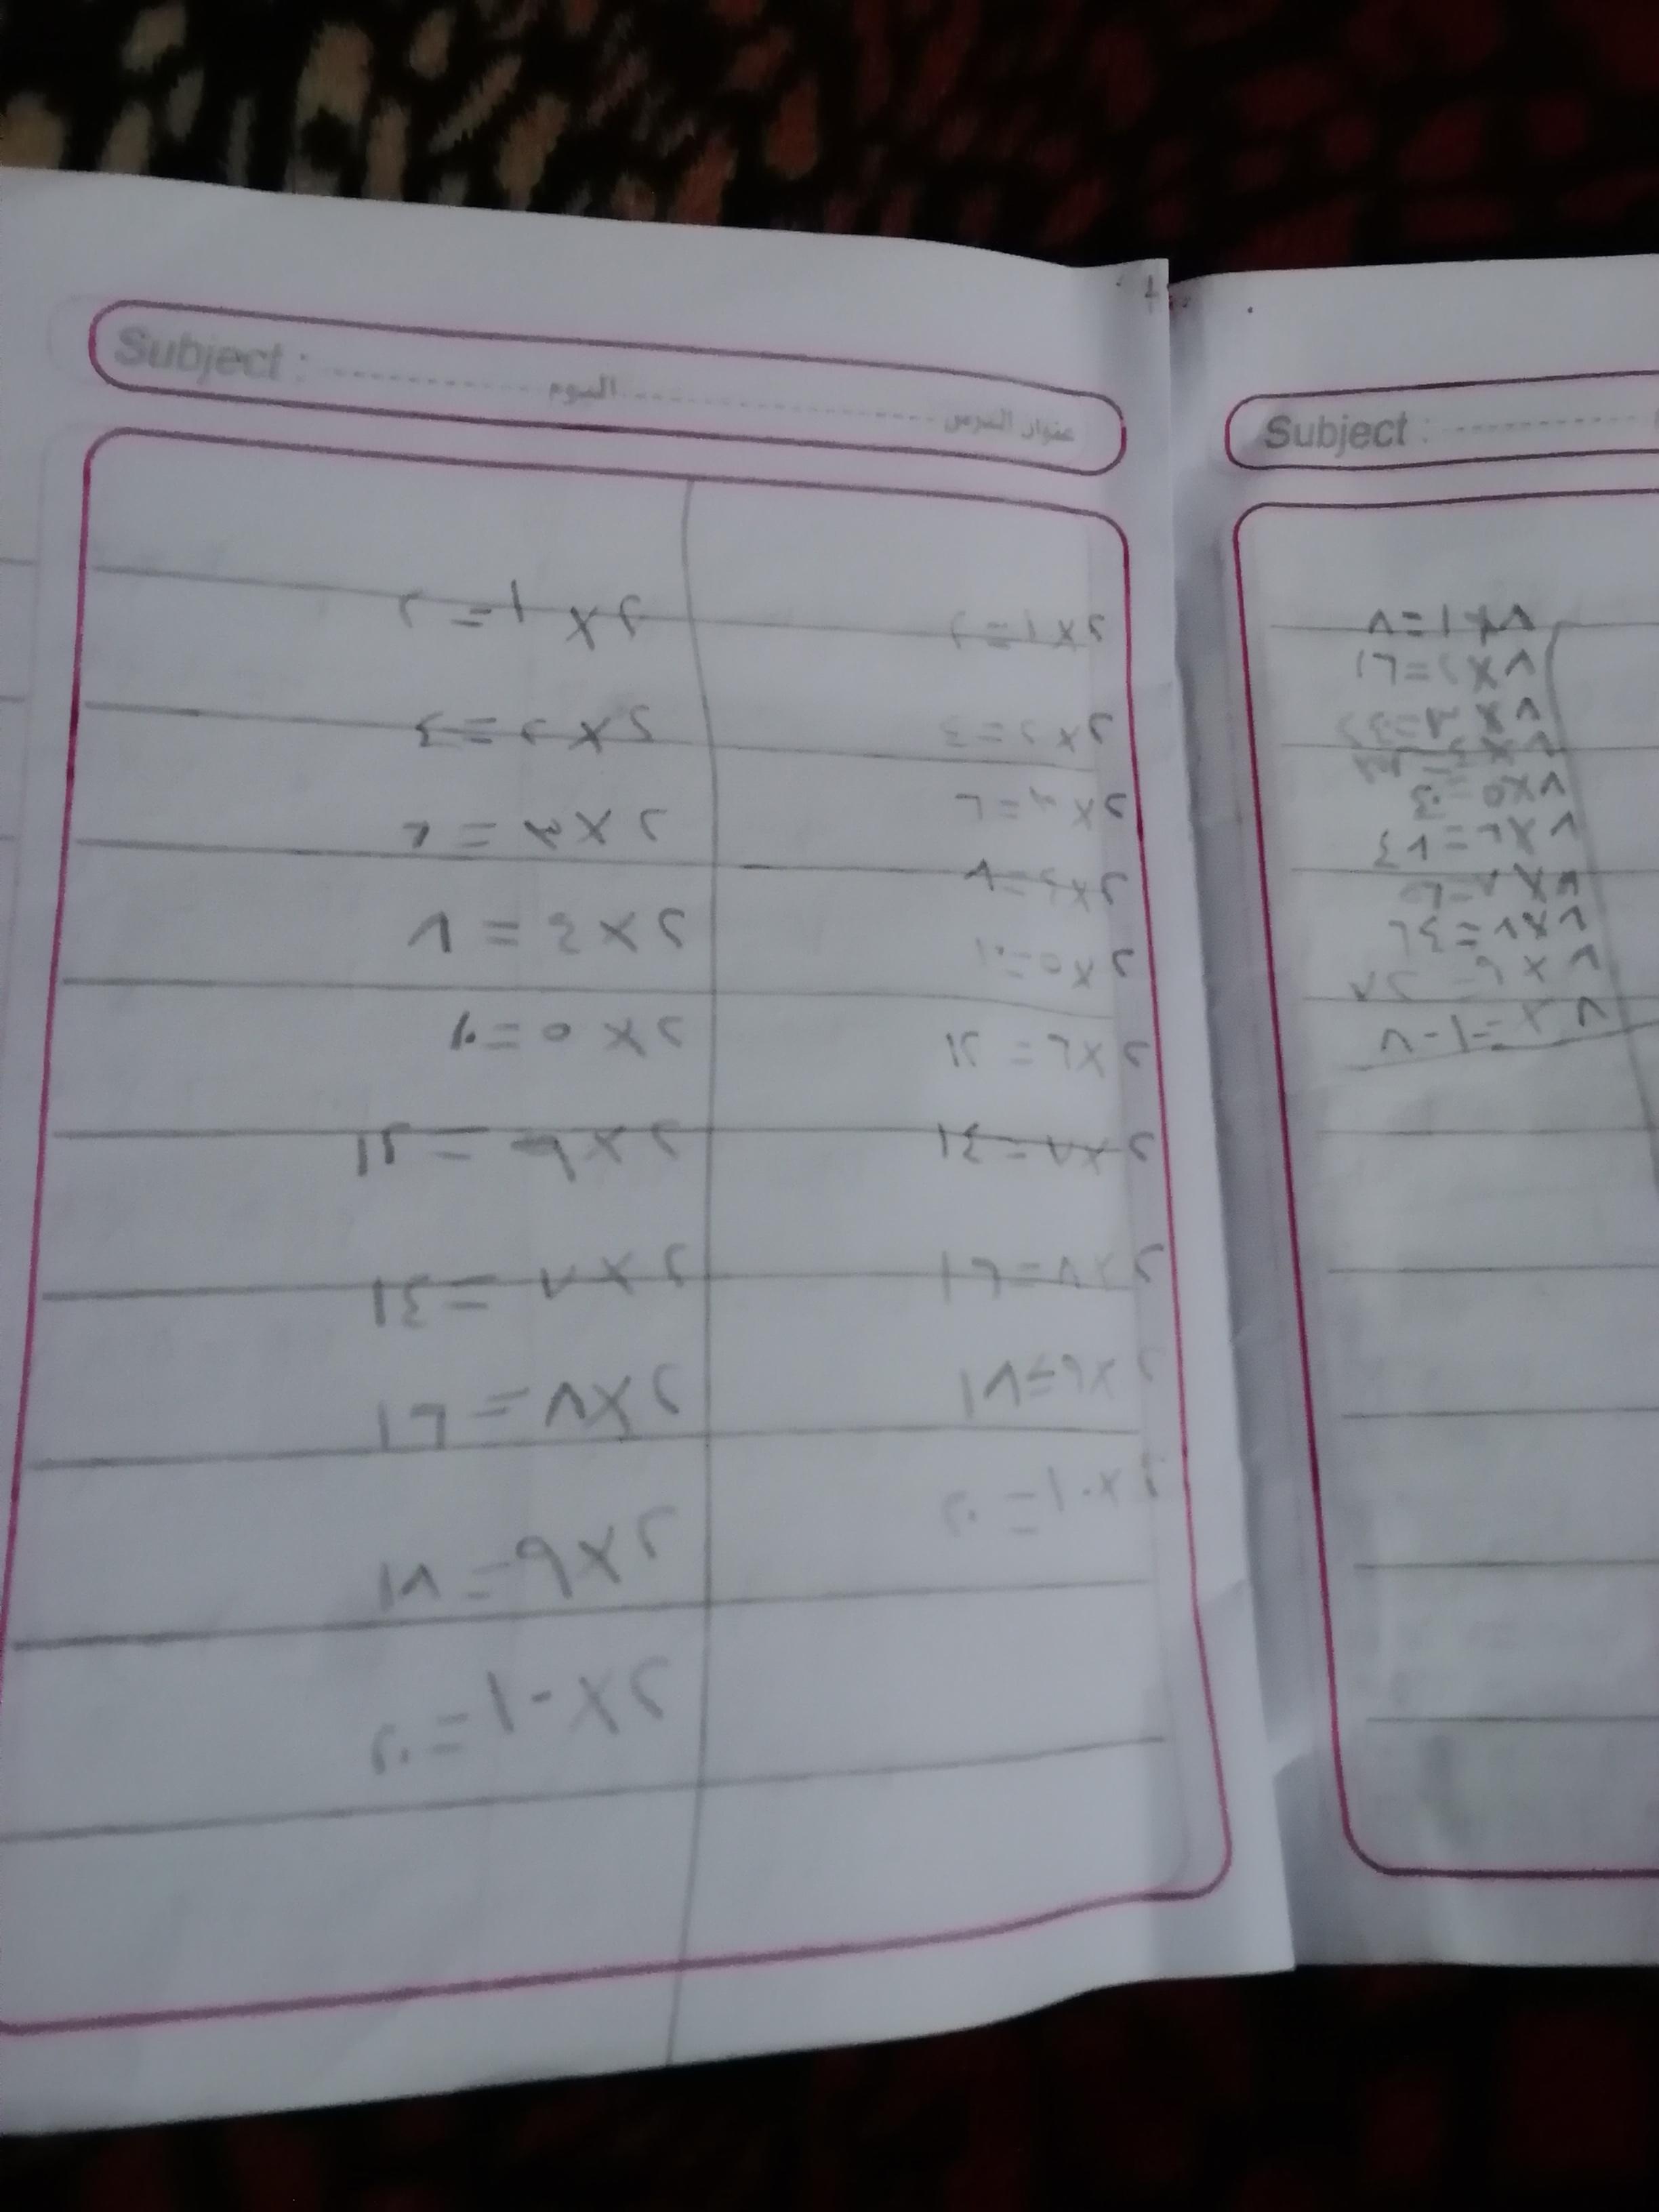 Subject :
اليوم
عنوان الدرس
٢×١=٢
٢×٢=٤
٢×٣=٦
٢×٤=٨
٢×٥=١٠
٢×٦=١٢
٢×٧=١٤
٢×٨=١٦
٢×٩=١٨
٢×١٠=٢٠
٢×١=٢
٢×٢=٤
٢×٣=٦
٢×٤=٨
٢×٥=١٠
٢×٦=١٢
٢×٧=١٤
٢×٨=١٦
٢×٩=١٨
٢×١٠=٢٠
Subject :
٨×١=٨
٨×٢=١٦
٨×٥=٤٠
٨×٦=٤٨
٨×٨=٦٤
٨×١٠=٨٠